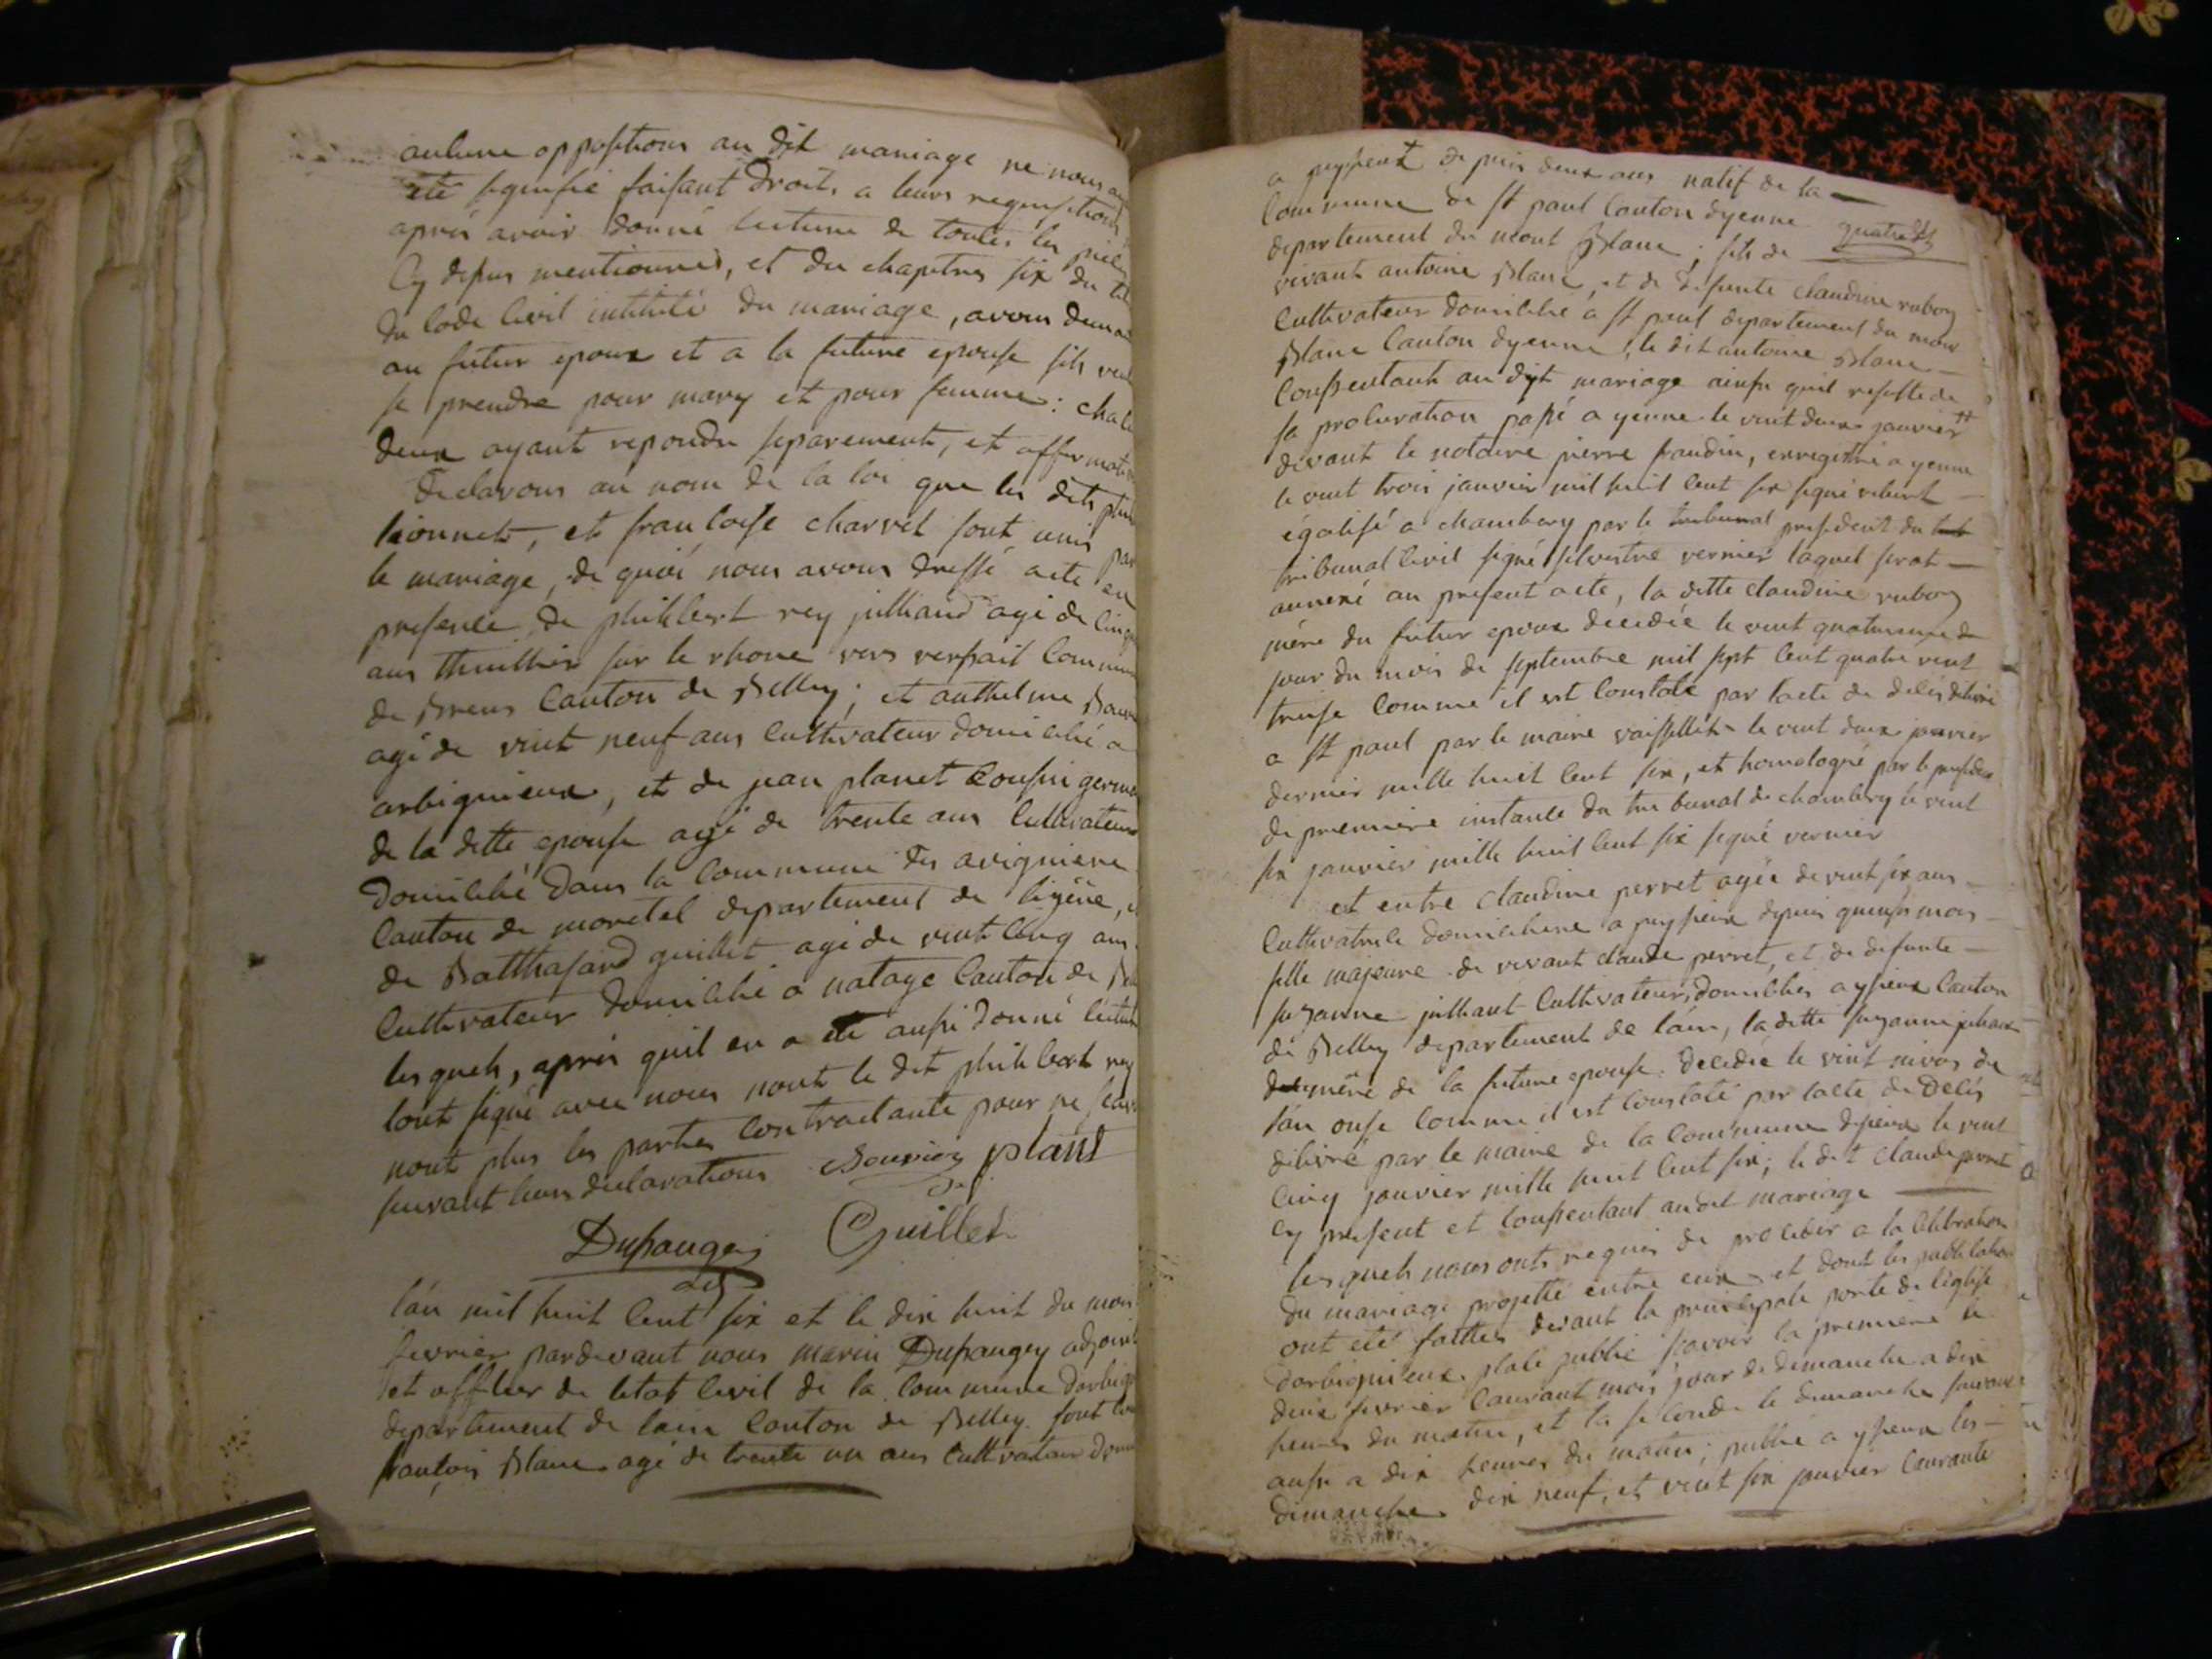 aucune oppositions au dit mariage ne nous
été signifié faisant droits a leurs requisitions
après avoir donné lecture de toutes les
Cy desus mentionnés, et du chapitres six du
du Code Civil intitulé du mariage, avons
au futur epoux et a la future epouse sils
se prendre pour mary et pour femme:
deux ayant repondu separements, et
declarons au nom de la loi que les dits
et francoise charvet sont unis par
le mariage, de quoi nous avons dressé acte en
presence de philibert rey julliand agé de
ans sur le rhone vers Commune
de Brens Canton de Belley; et anthelme
agé de vint neuf ans Cultivateur domicilié a
arbignieux, et de jean planet Cousin
de la ditte epouse agé de trente ans Cultivateur
domicilié dans la Commune des avignieres
Canton de moretel departement de
de Batthasard guillet agé de vint Cinq ans
Cultivateur domicilié a natage Canton de
les quels, après quil en a été aussi donné
tont signé avec nous nont le dit philibert rey
nont plus les parties Contractante pour ne
suivant leurs declarations plant
Guillet
Dupaugey
lán mil huit Cent six et le dix huit du mois
fevrier pardevant nous marin Dupaugey adjoint
et officier de letat Civil de la Commune
departement de lain Canton de Belley sont
françois Blanc agé de trente un ans Cultivateur
a peyzieux de puis deux ans natif de la
Commune de st paul Canton dyenne
departement du mont Blanc; fils de
vivant antoine Blanc, et de defunte claudine
Cultivateur domicilié a st paul departement du mont
Blanc Canton dyenne, le dit antoine Blanc
Consentant au dit mariage ainsi quil resulte de
sa procuration passé a yenne le vint deux janvier
devant le notaire pierre enregistré a yenne
le vint trois janvier mil huit Cent six signé
égalisé a chambery par le tribunal president du
tribunal Civil signé silvestre vernier laquel serat
annexé au present acte, la ditte claudine
mère du futur epoux decedée le vint
jour du mois de septembre mil sept Cent quatre vint
treise Comme il est Constaté par lacte de délivré
a st paul par le maire le vint deux janvier
dernier mille huit Cent six, et homologué par le
de premiere instance du tribunal de chambery le vint
six janvier mille huit Cent six signé vernier
et entre claudine perret agée de vint six ans
Cultivatrice domicilière a peyzieux depuis quinse mois
fille majeure de vivant claude perret, et de defunte
suzanne julliant Cultivateurs, domiciliés Canton
de Belley departement de láin, la ditte suzanne
mère de la future epouse decedée le vint nivos de
lán onse Comme il est Constaté par lacte de Décés
délivré par le maire de la Commune le vint
Cinq janvier mille huit Cent six; le dit claude perret
Cy present et Consentant audit mariage
les quels nous onts requis de procéder a la Célébration
du mariage projetté entre eux et dont les publications
ont eté faittes devant la principale porte de léglise
darbignieux place public scavoir la premiere le
deux fevrier Courant mois jour de dimanche a dix
heures du matin, et la seconde le dimanche
aussi a dix heures du matin; publié a les
dimanche dix neuf, et vint six janvier Courante